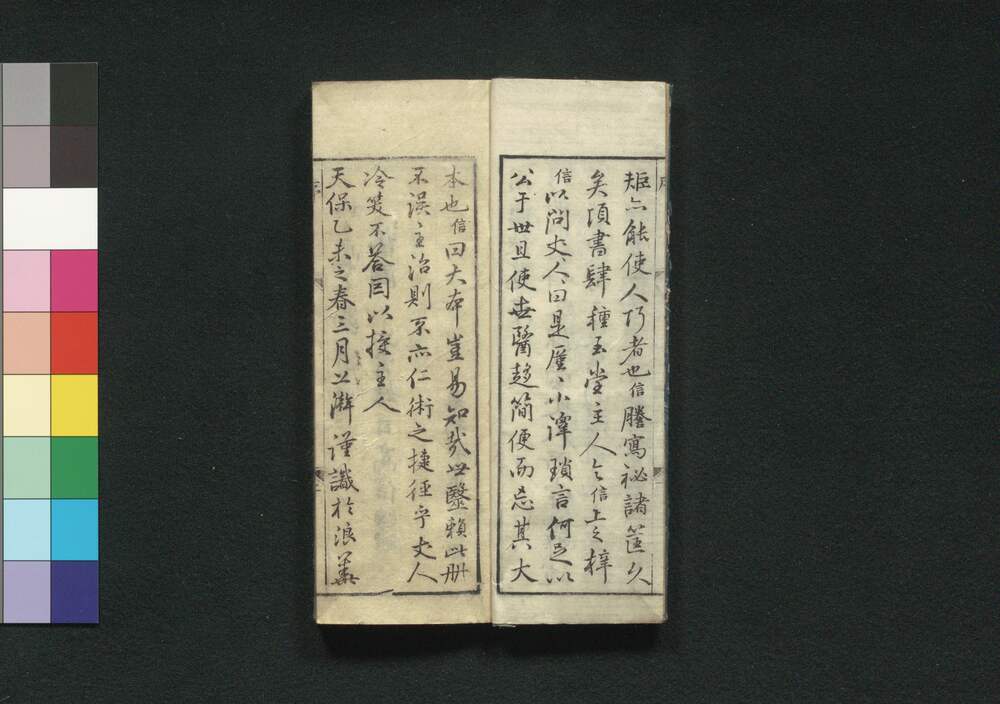 矩亦能使人巧者也信謄寫祕諸筐久
矣頃書肆種玉堂主人乞信上之梓
信以問丈人人曰是屑屑小譚瑣言何足以
公于世且使世醫趍簡便而忘其大
本也信曰大本豈易知哉世醫賴此册
不誤主治則不亦仁術之捷徑乎丈人
冷笑不答因以授主人
天保乙未之春三月上澣謹識於浪華